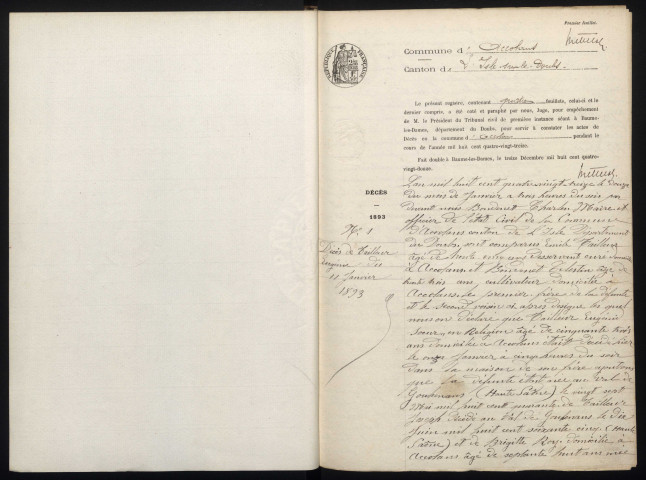 Premier feuillet.
Commune d' Accolans
Canton de L'Isle-sur-le-Doubs.
RÉPUBLIQUE FRANÇAISE
Le présent registre, contenant quatre feuillets, celui-ci et le
dernier compris, a été coté et paraphé par nous, Juge, pour empêchement
de M. le Président du Tribunal civil de première instance séant à Baume-
les-Dames, département du Doubs, pour servir à constater les actes de
Décès en la commune d'Accolans pendant le
cours de l'année mil huit cent quatre-vingt-treize.
Fait double à Baume-les-Dames, le treize Décembre mil huit cent quatre-
vingt-douze.
DÉCÈS
1893
N° 1
Décès de Tailleur
Eugénie du
11 Janvier
1893
L'an mil huit cent quatre vingt treize le douze
du mois de Janvier à trois heures du soir par
devant nous Charles Maire et
officier de l'état civil de la Commune
d'Accolans canton de L'Isle Département
du Doubs, sont comparus Emile Tailleur
âgé de trente
à Accolans et Célestin âgé de
trente trois ans, cultivateur domicilié à
Accolans le premier frère de la défunte
et le second voisin ci après désigné les quels
nous ont déclaré que Tailleur Eugénie
sœur en Religion âgé de cinquante trois
ans domicilié à Accolans était décédé hier
le onze Janvier à cinq heures du soir
dans la maison de son frère ajoutons
que la défunte était née au Val de
Gouhenans (Haute Saône) le vingt sept
Mai mil huit cent quarante de Tailleur
Joseph décédé au Val de Gouhenans le dix
Juin mil huit cent soixante cinq (Haute
Saône) et de Brigitte Roy domicilié à
Accolans âgé de septante huit ans mère